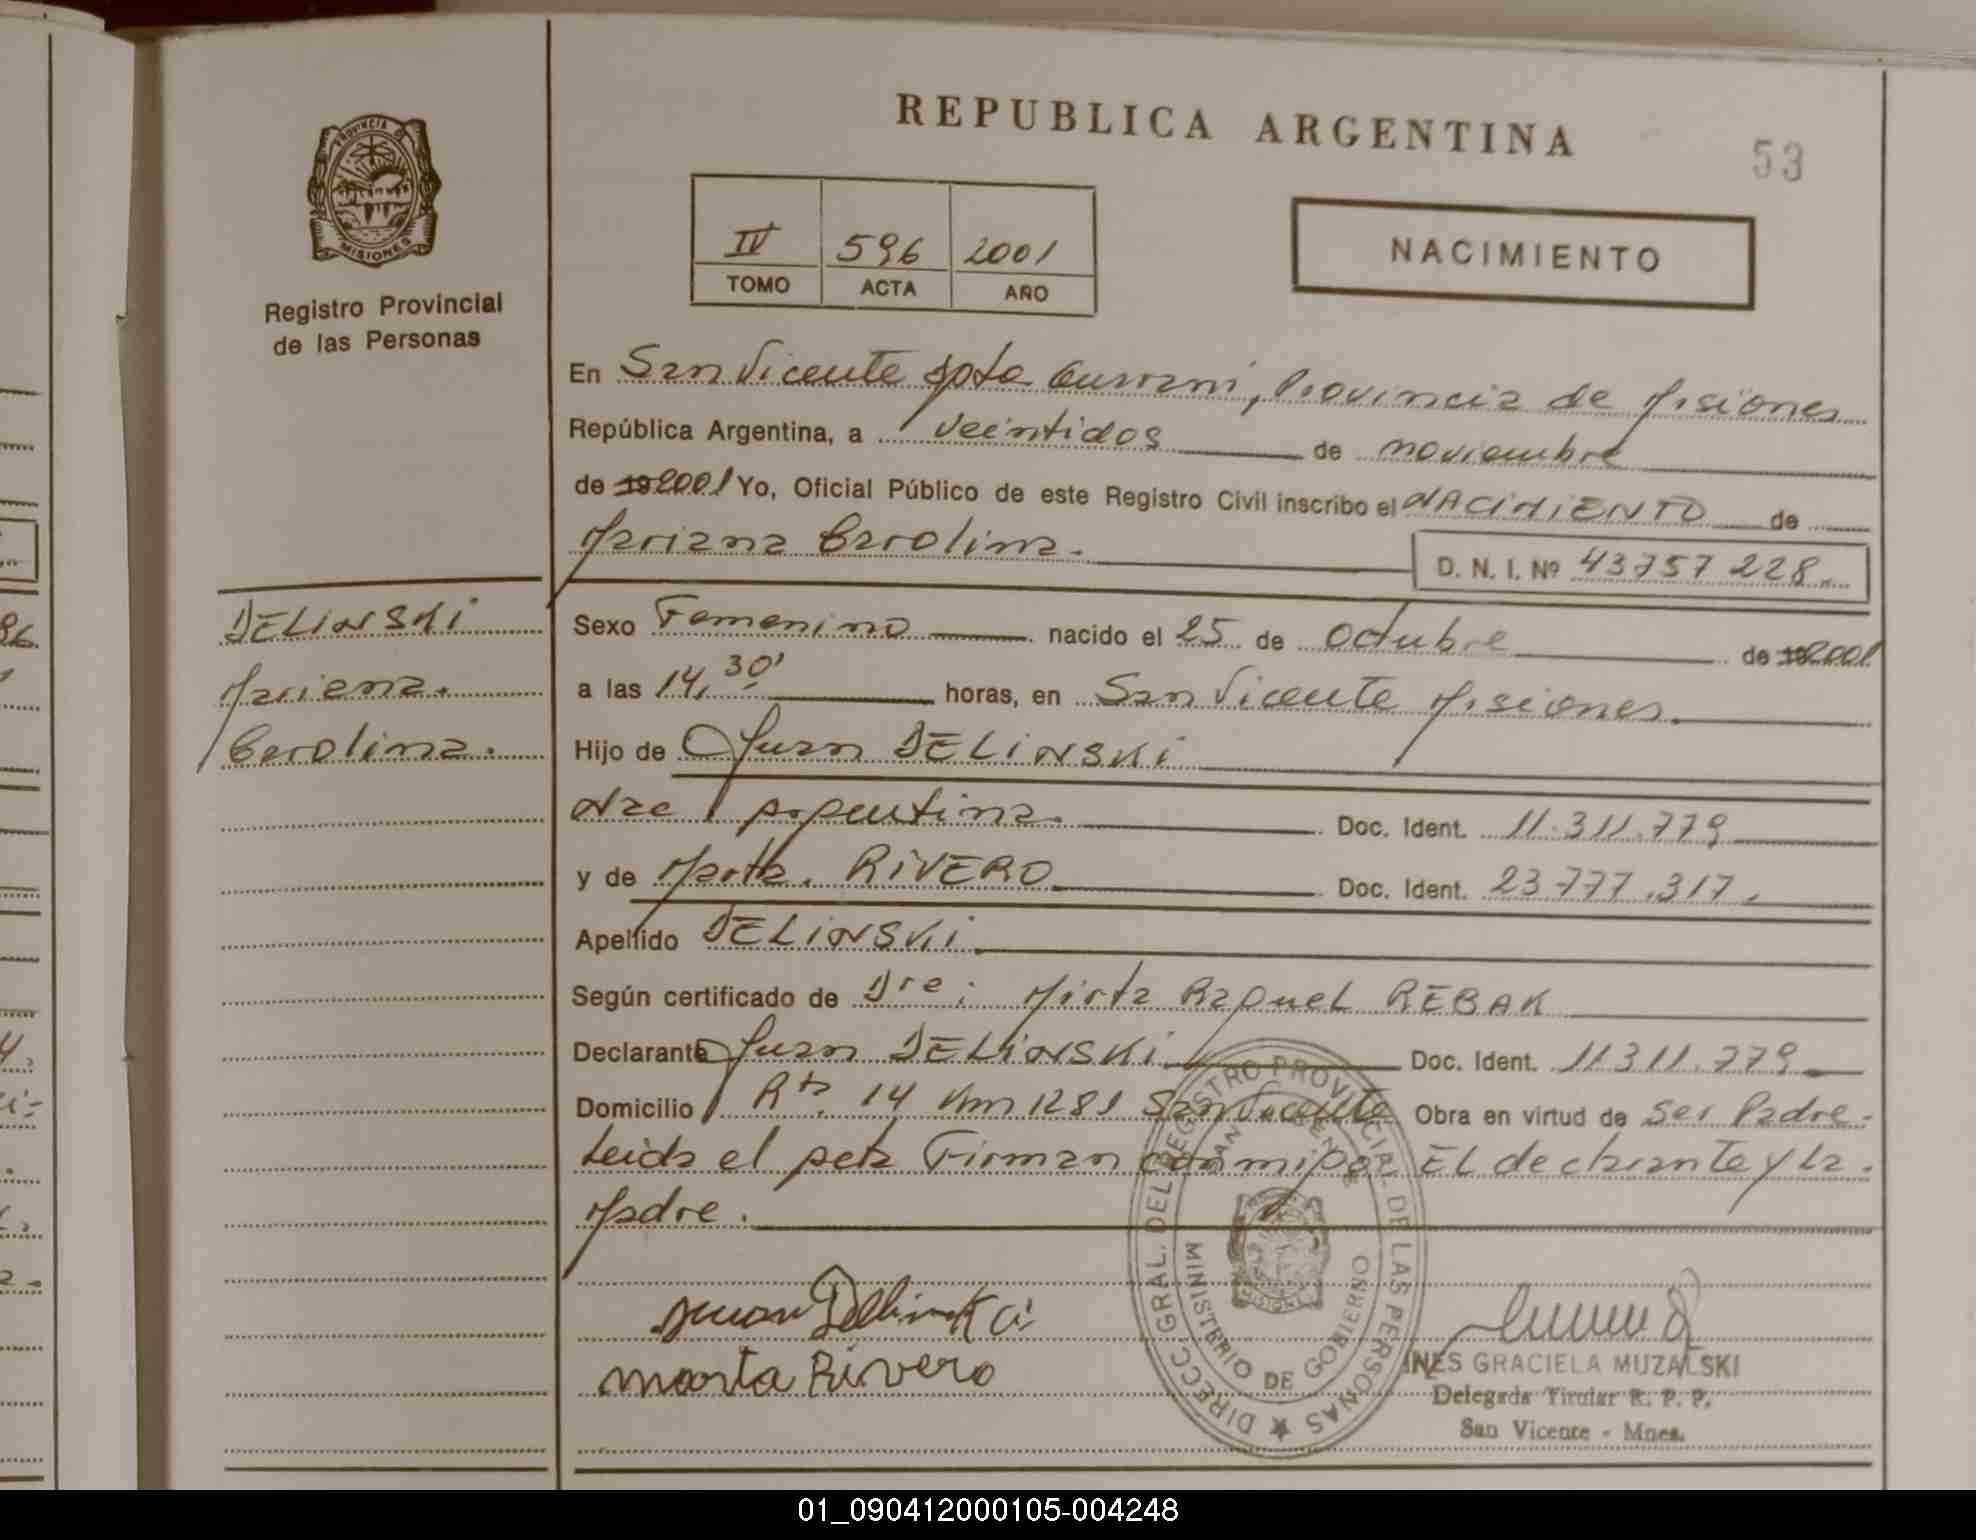 REPUBLICA ARGENTINA
53
PROVINCIA D
MISIONES
Registro Provincial
de las Personas
IV 596 2001
TOMO ACTA AÑO
NACIMIENTO
En San Vicente Dpto Guarani, Provincia de Misiones
República Argentina, a veintidos de noviembre
de 19 2001 Yo, Oficial Público de este Registro Civil inscribo el NACIMIENTO de
Mariana Carolina.
D. N. I. Nº 43757 228
DELINSKI
Mariana.
Carolina.
Sexo Femenino nacido el 25 de Octubre de 19 2001
a las 14,30' horas, en San Vicente Misiones.
Hijo de Juan DELINSKI
Nac Argentina. Doc. Ident. 11.311.779
y de Marta. RIVERO Doc. Ident. 23.777.317.
Apellido DELINSKI
Según certificado de Dra: Mirta Raquel REBAK
Declarante Juan DELINSKI Doc. Ident. 11311.779
Domicilio Rta. 14 Km 1281 San Vicente Obra en virtud de ser Padre.
Leida el acta Firman conmigo: EL declarante y la.
Madre.
Juan Dellinski
marta Rivero
DIRECC. GRAL. DEL REGISTRO PROVINCIAL DE LAS PERSONAS
MINISTERIO DE GOBIERNO
MISIONES
INES GRACIELA MUZALSKI
Delegada Titular R. P. P.
San Vicente - Mnes.
01_090412000105-004248